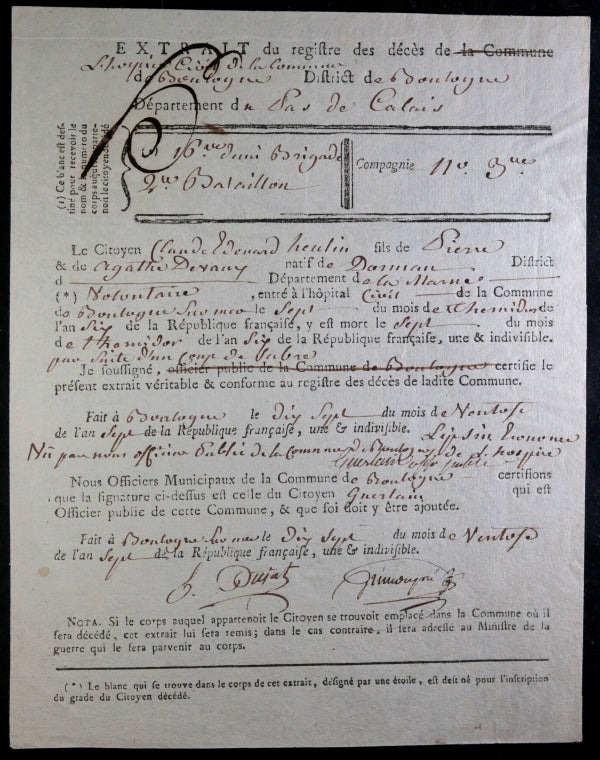 EXTRAIT du regiſtre des décès de la Commune
L'hospice Civil de la commune
de Boulogne Diſtrict de Boulogne
Département du Pas de Calais
(1) Ce blanc eſt deſ-
tiné pour recevoir le
nom & le numéro du
corps auquel apparte-
noit le citoyen décédé
16.me demi Brigade
2.me Bataillon
Compagnie 11.e
Le Citoyen Claude Edouard heulin fils de Pierre
& de Agathe Devaux natif de Dorman Diſtrict
d Département de la Marne
(*) Volontaire, entré à l'hôpital Civil de la Commune
de Boulogne sur mer le Sept du mois de thermidor de
l'an Six de la République françaiſe, y eſt mort le sept du mois
de thermidor de l'an Six de la République françaiſe, une & indiviſible.
par suite d'un Coup de Sabre
Je souſſigné, officier public de la Commune de Boulogne certifie le
préſent extrait véritable & conforme au regiſtre des décès de ladite Commune.
Fait à Boulogne le dix Sept du mois de Ventose
de l'an Sept de la République françaiſe, une & indiviſible. Econome
Vu par nous officier Public de la Commune de Boulogne de L'hospice
Guerlain off. public
Nous Officiers Municipaux de la Commune de Boulogne certifions
que la ſignature ci-deſſus eſt celle du Citoyen Guerlain qui eſt
Officier public de cette Commune, & que foi doit y être ajoutée.
Fait à Boulogne Sur mer le dix Sept du mois de Ventose
de l'an Sept de la République françaiſe, une & indiviſible.
NOTA. Si le corps auquel appartenoit le Citoyen se trouvoit emplacé dans la Commune où il
ſera décédé, cet extrait lui ſera remis; dans le cas contraire, il ſera adreſſé au Miniſtre de la
guerre qui le ſera parvenir au corps.
(*) Le blanc qui ſe trouve dans le corps de cet extrait, déſigné par une étoile, eſt deſtiné pour l'inſcription
du grade du Citoyen décédé.